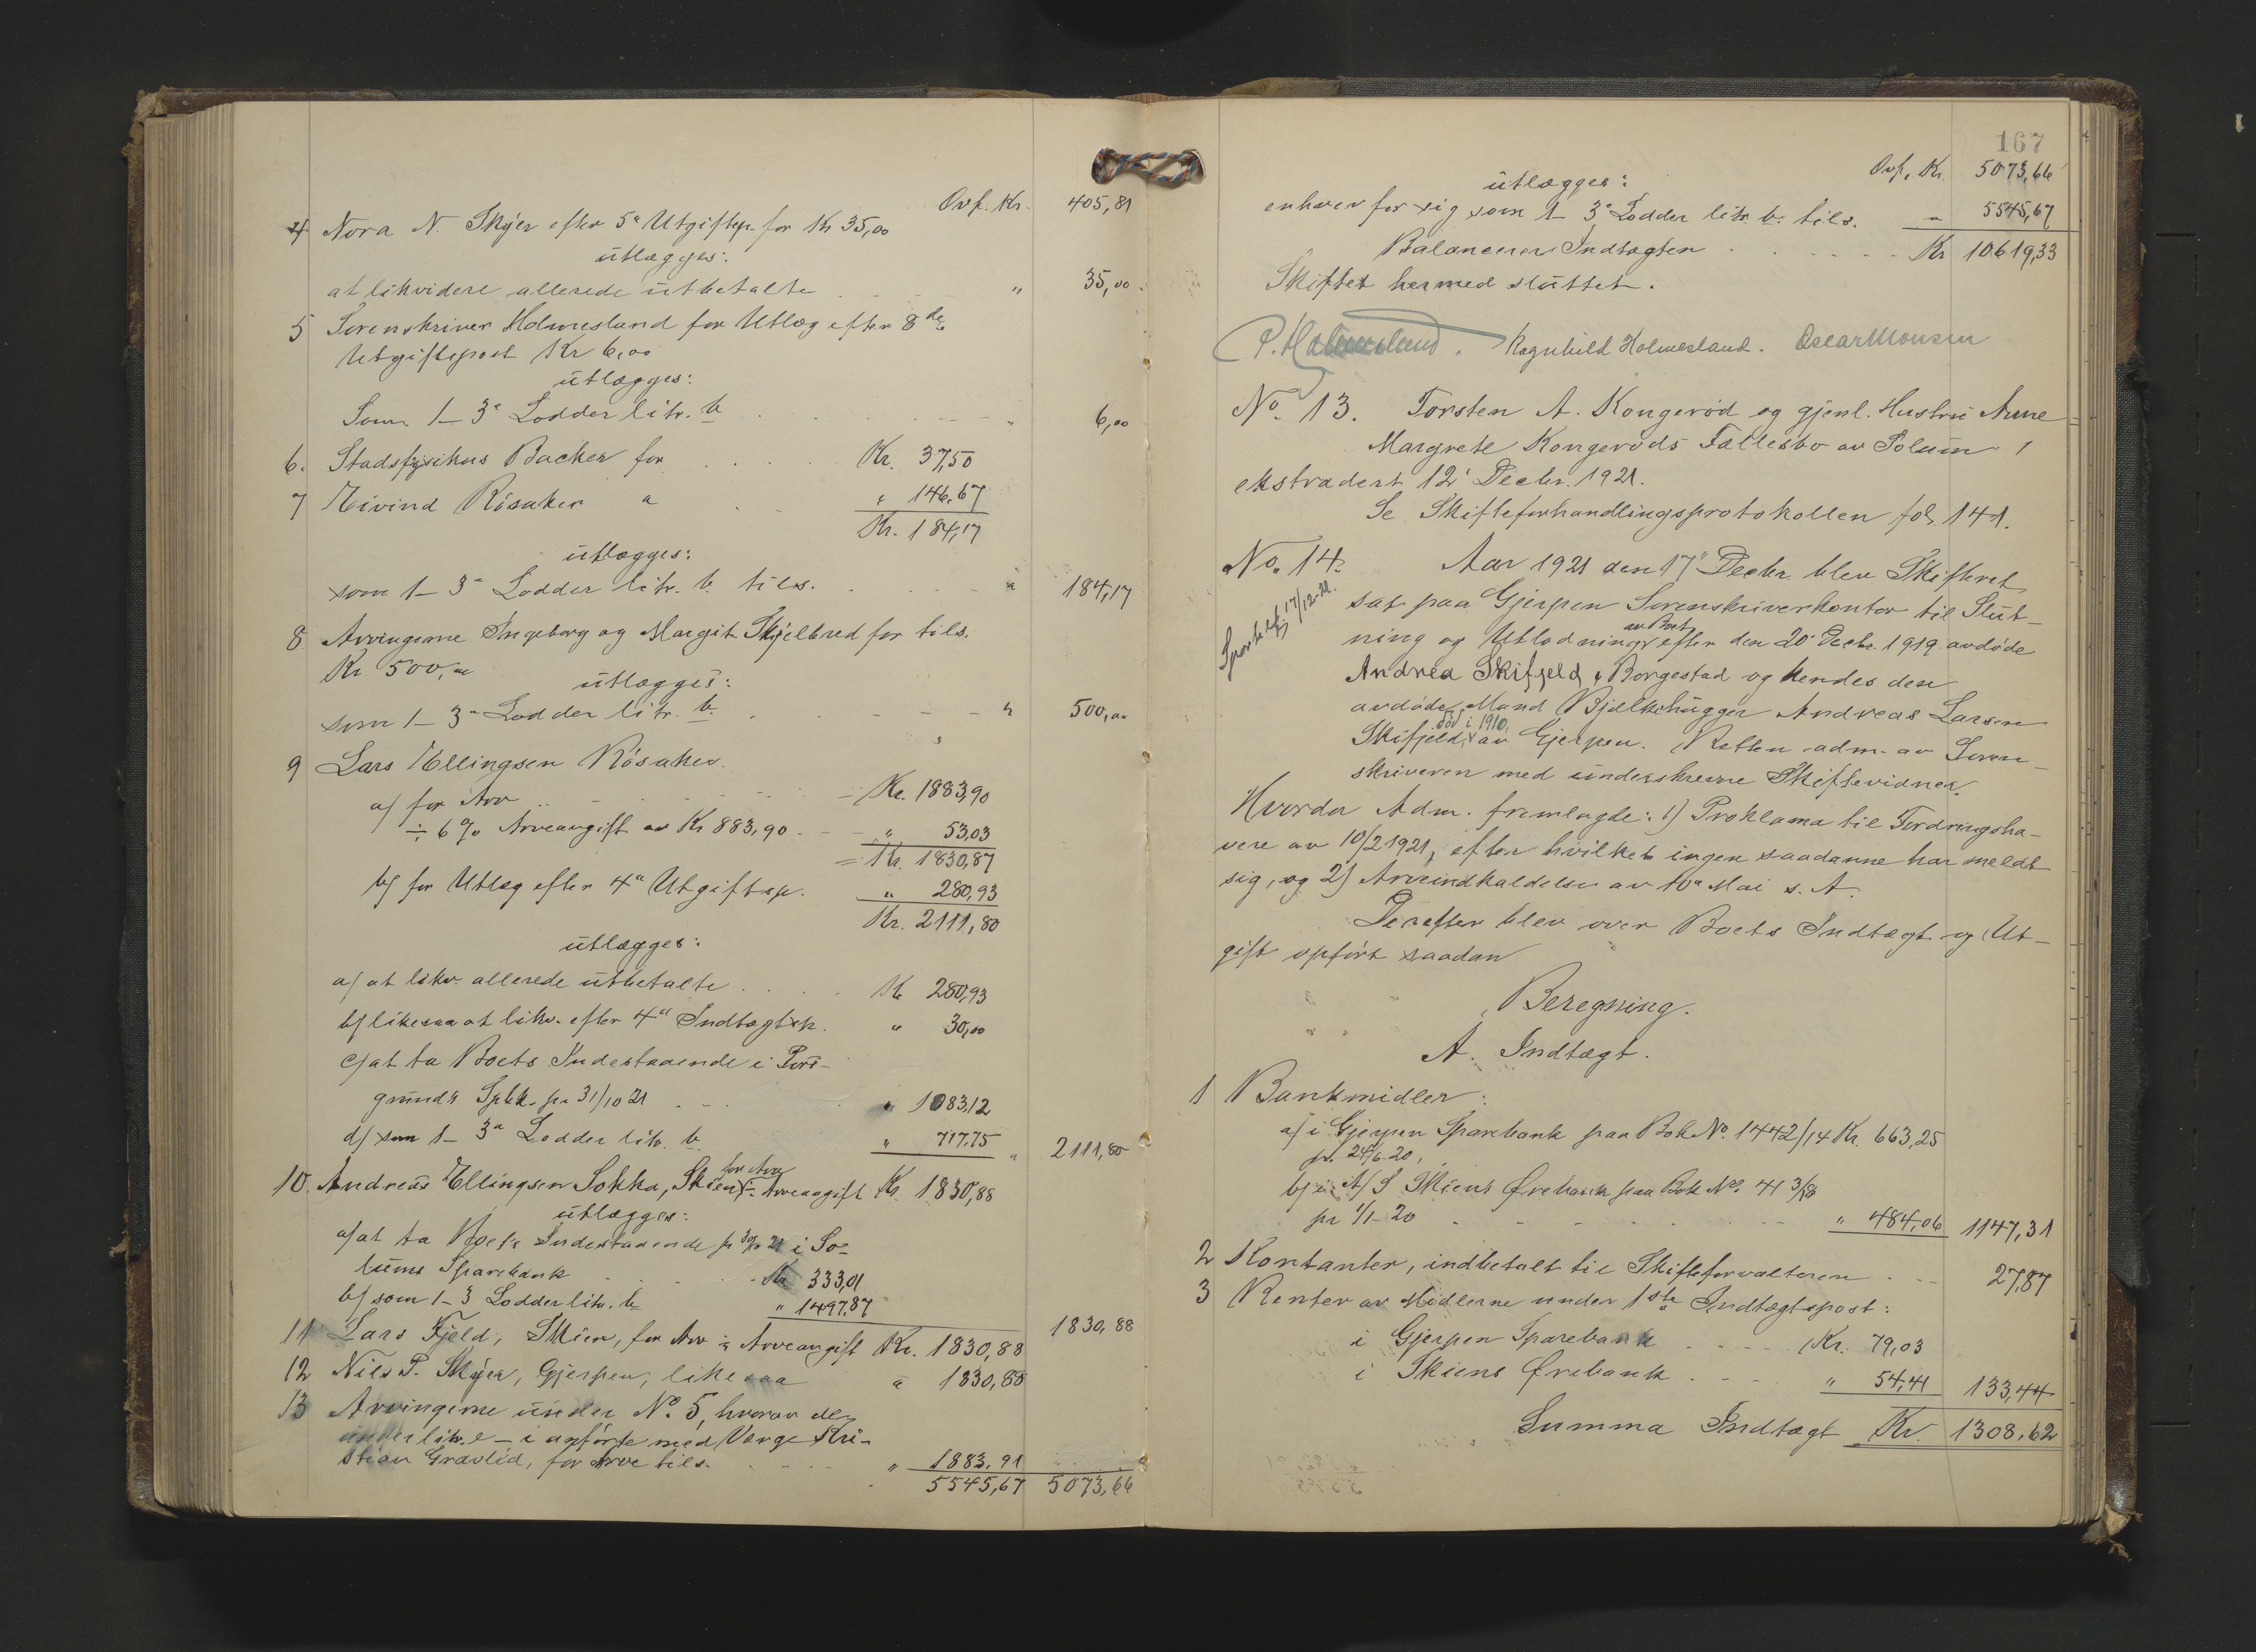 Ovf. Kr. 405,81
4 Nora N. Skyer efter 5a Utgiftsp. for Kr 35,00
utlægges:
at likvidere allerede utbetalte " 35,00
5 Sorenskriver Holmesland for Utlæg efter 8de
Utgiftspost Kr 6,00
utlægges:
Som 1-3a Lodder litr. b " 6,00
6. Stadsfysikus Backer for Kr. 37,50
7 Eivind Rösaker " " 146,67
Kr. 184,17
utlægges:
som 1-3a Lodder litr. b. tils. " 184,17
8 Arvingerne Ingeborg og Margit Skjelbred for tils.
Kr 500,00
utlægges:
som 1-3a Lodder litr. b. " 500,00
9 Lars Ellingsen Rösaker.
a) for Arv Kr. 1883,90
÷ 6% Arveavgift av Kr 883,90 " 53,03
= Kr. 1830,87
b) for Utlæg efter 4a Utgiftsp. " 280,93
Kr. 2111,80
utlægges:
a) at likv. allerede utbetalte Kr 280,93
b) likesaa at likv. efter 4a Indtægtsp. " 30,00
c) at ta Boets Indestaaende i Pors-
grunds Spbk. pr 31/10 21 " 1083,12
d) som 1-3a Lodder litr. b " 717,75 " 2111,80
10. Andreas Ellingsen Sokka, Skien, for Arv ÷ Arveavgift Kr. 1830,88
utlægges:
a) at ta Boets Indestaaende pr 21 i So-
lums Sparebank Kr 333,01
b) som 1-3 Lodder litr. b " 1497,87
1830,88
11 Lars Fjeld, Skien, for Arv ÷ Arveavgift Kr. 1830,88
12 Nils P. Skyer, Gjerpen, likesaa " 1830,88
13 Arvingerne under No. 5, hvorav de
under litr. e - i anförte med Værge Kri-
stian Gravlid, for Arve tils. " 1883,91
5545,67 5073,66
167
Ovf. Kr. 5073,66
utlægges:
enhver for sig som 1-3a Lodder litr. b. tils. " 5545,67
Balancerer Indtægten Kr 10619,33
Skiftet hermed sluttet.
P. Holmesland. Ragnhild Holmesland. Oscar Monsen
No. 13. Torsten A. Kongeröd og gjenl. Hustru Anne
Margrete Kongeröds Fællesbo av Solum
ekstradert 12' Decbr. 1921.
Se Skifteforhandlingsprotokollen fol. 141.
No. 14. Aar 1921 den 17" Decbr. blev Skifteret
17/12-21.
sat paa Gjerpen Sorenskriverkontor til Slut-
ning og Utlodning av Boet efter den 20' Decbr. 1919 avdöde
Andrea Skifjeld, Borgestad og hendes den
avdöde Mand Bjelkehugger Andreas Larsen
Skifjeld, död i 1910, av Gjerpen. Retten adm. av Soren-
skriveren med underskrevne Skiftevidner.
Hvorda Adm. fremlagde: 1) Proklama til Fordringsha-
vere av 10/2 1921, efter hvilket ingen saadanne har meldt
sig, og 2) Arveindkaldelse av 10a Mai s. A.
Derefter blev over Boets Indtægt og Ut-
gift opfört saadan
Beregning.
A. Indtægt.
1 Bankmidler:
a) i Gjerpen Sparebank paa Bok No. 1442/14 Kr. 663,25
pr. 24/6-20,
b) i A/S Skiens Örebank paa Bok No. 41 3/58
pr 1/1-20 " 484,06 1147,31
2 Kontanter, indbetalt til Skifteforvalteren 27,87
3 Renter av Midlerne under 1ste Indtægtspost:
i Gjerpen Sparebank Kr. 79,03
i Skiens Örebank " 54,41 133,44
Summa Indtægt Kr. 1308,62